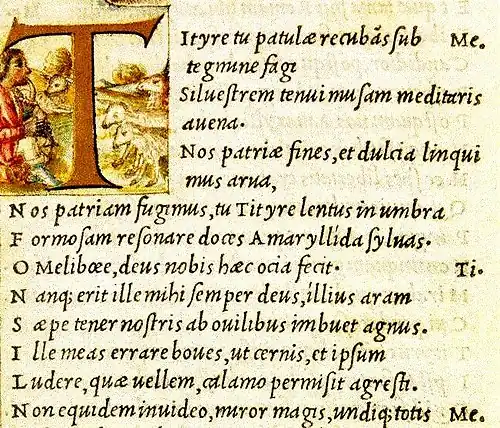 Tityre tu patulæ recubãs sub Me.
tegmine fagi
Siluestrem tenui musam meditaris
auena.
Nos patriæ fines, et dulcia linqui
mus arua,
Nos patriam fugimus, tu Tityre lentus in umbra
Formosam resonare doces Amaryllida syluas.
O Meliboee, deus nobis hæc ocia fecit. Ti.
Nanq; erit ille mihi semper deus, illius aram
Sæpe tener nostris ab ouilibus imbuet agnus.
Ille meas errare boues, ut cernis, et ipsum
Ludere, quæ uellem, calamo permisit agresti.
Non equidem inuideo, miror magis, undiq; totis Me.